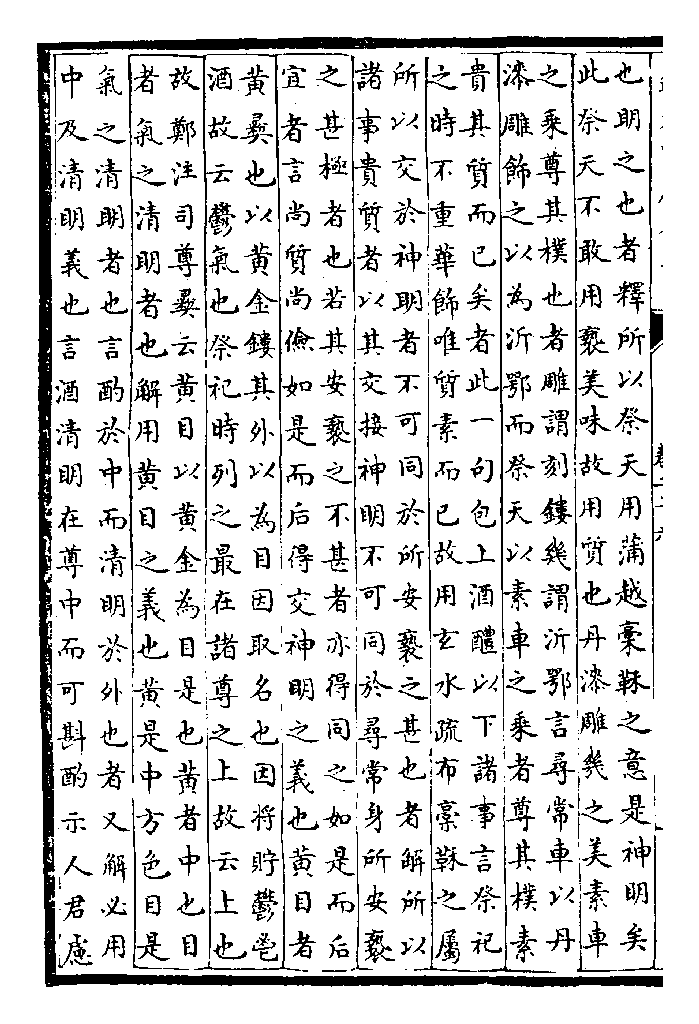 也明之也者釋所以祭天用蒲越稾鞂之意是神明矣
此祭天不敢用褻美味故用質也丹漆雕幾之美素車
之乘尊其樸也者雕謂刻鏤幾謂沂鄂言尋常車以丹
漆雕飾之以為沂鄂而祭天以素車之乘者尊其樸素
貴其質而已矣者此一句包上酒醴以下諸事言祭祀
之時不重華飾唯質素而已故用玄水疏布稾鞂之屬
所以交於神明者不可同於所安褻之甚也者解所以
諸事貴質者以其交接神明不可同於尋常身所安褻
之甚極者也若其安褻之不甚者亦得同之如是而后
宜者言尚質尚儉如是而后得交神明之義也黃目者
黃彝也以黃金鏤其外以為目因取名也因將貯鬱鬯
酒故云鬱氣也祭祀時列之最在諸尊之上故云上也
故鄭注司尊彝云黃目以黃金為目是也黃者中也目
者氣之清明者也解用黃目之義也黃是中方色目是
氣之清明者也言酌於中而清明於外也者又解必用
中及清明義也言酒清明在尊中而可斟酌示人君慮